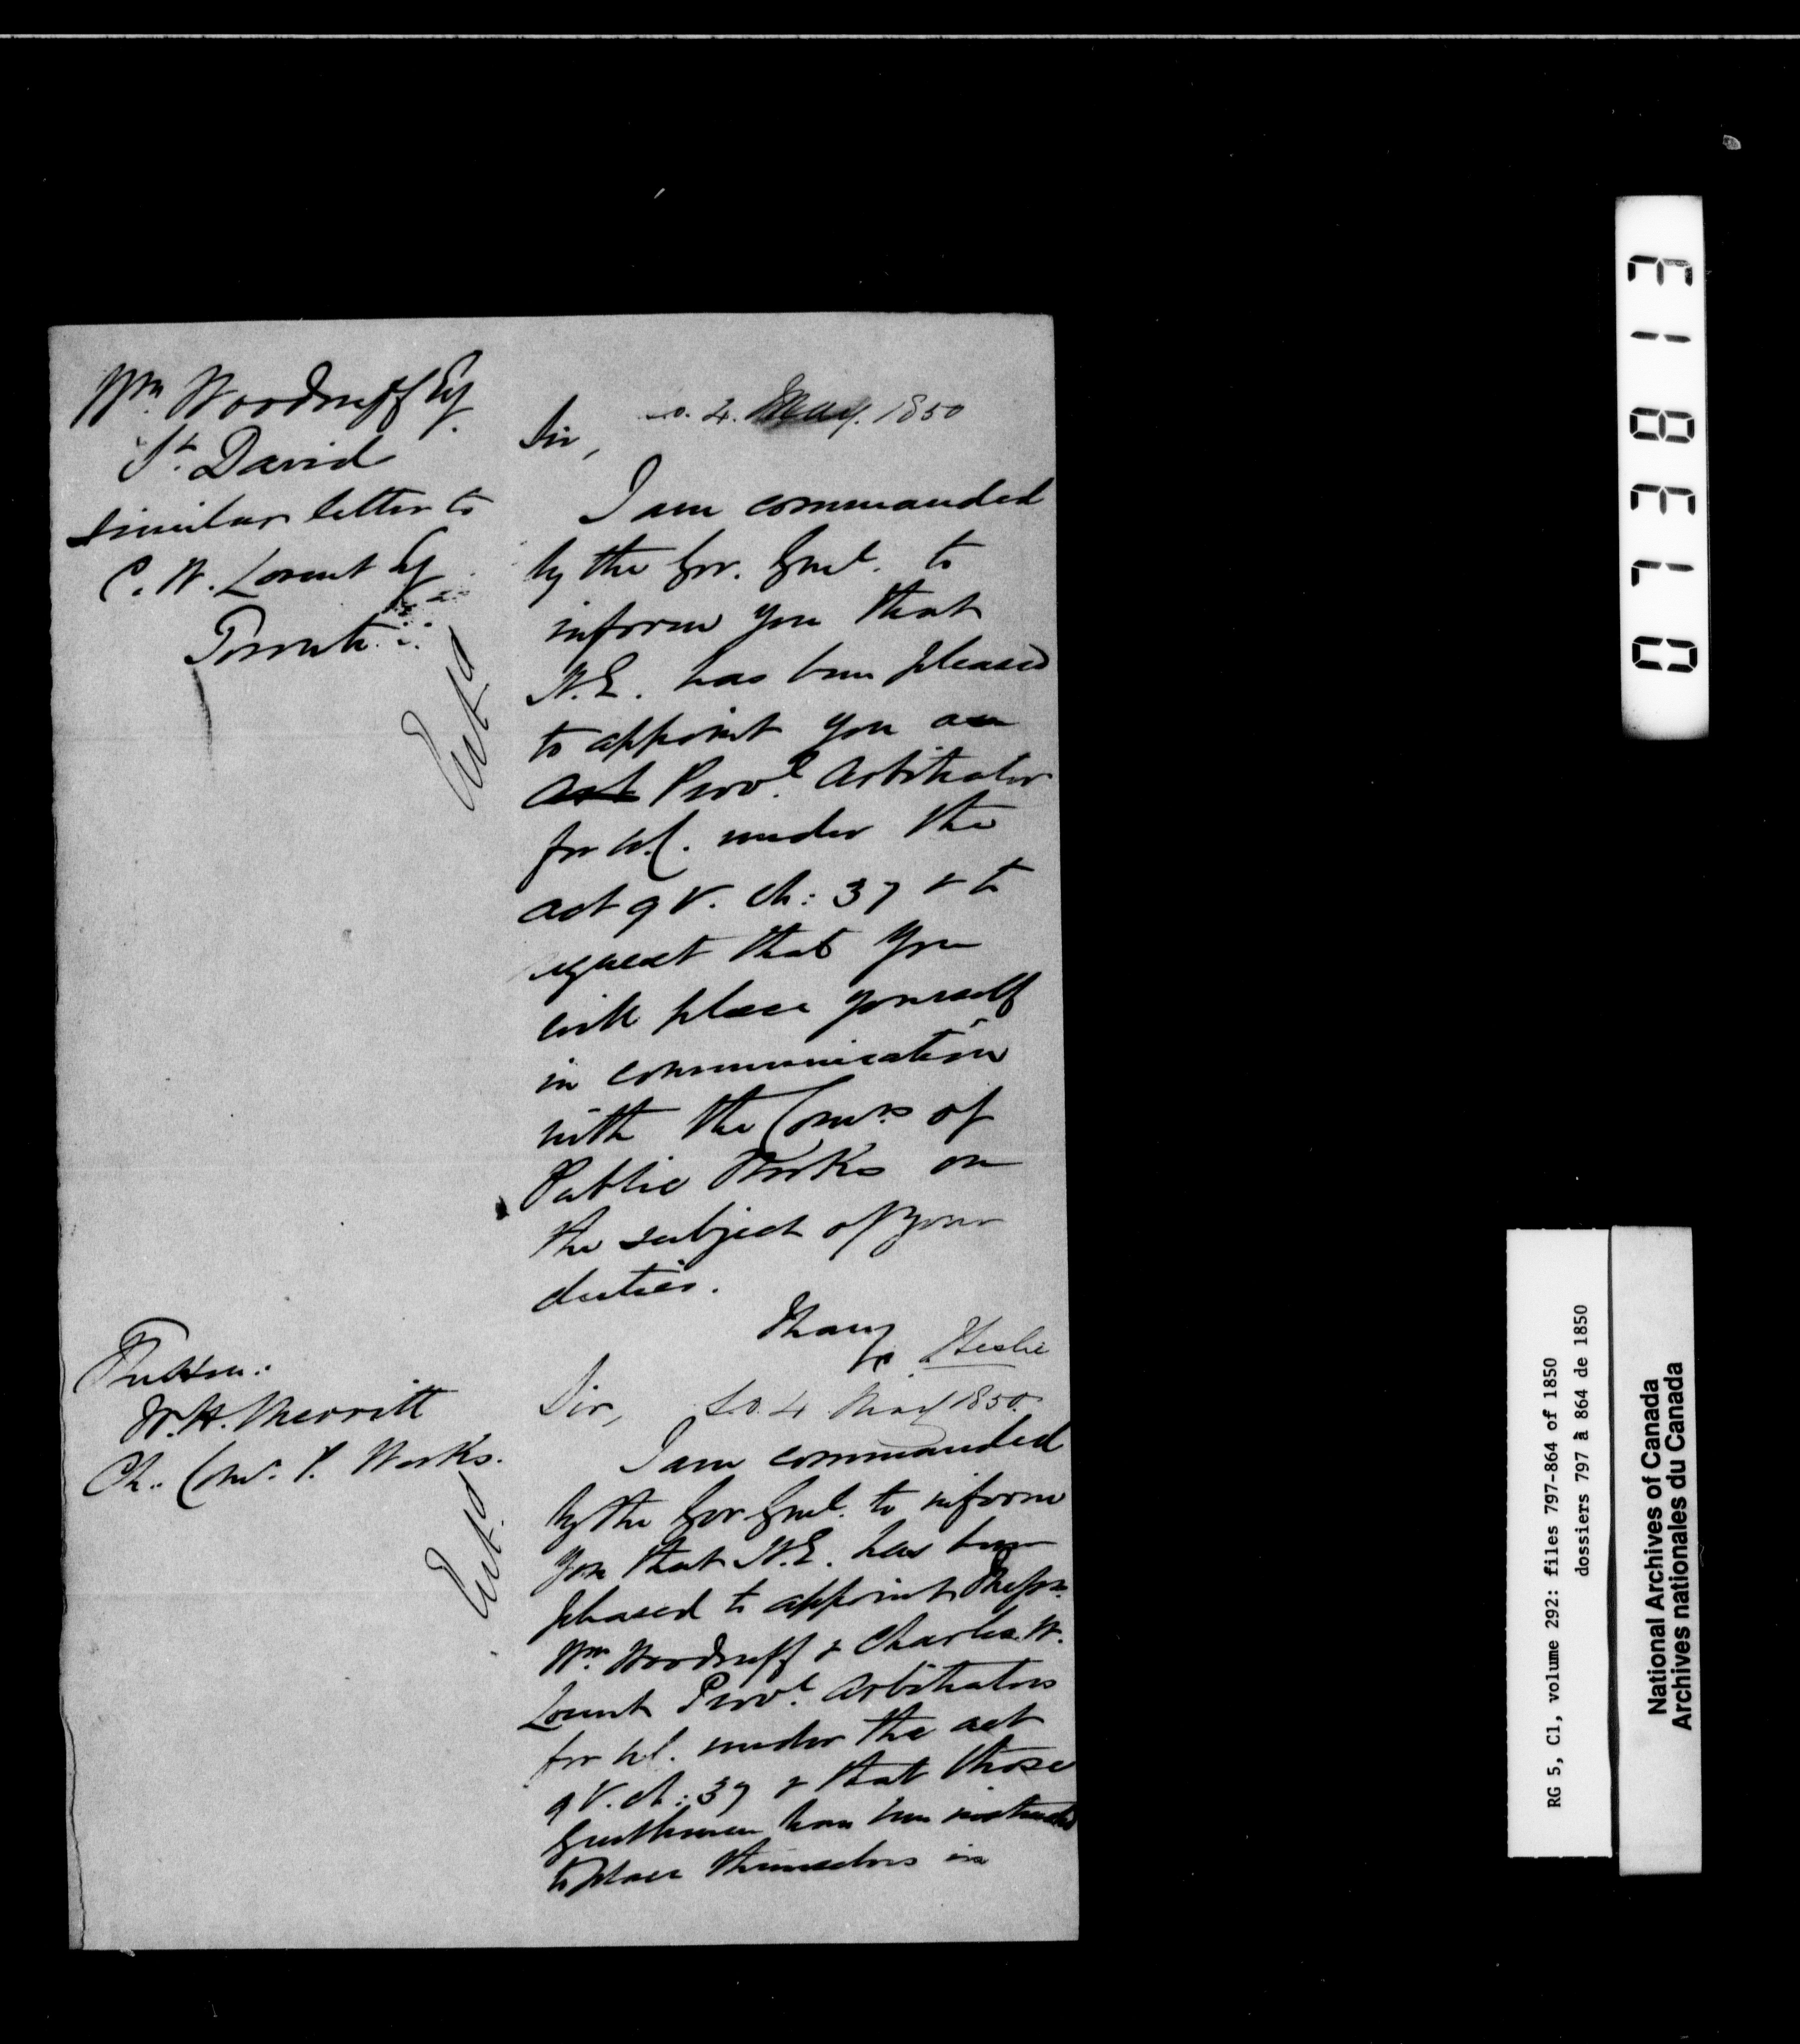 Wm Woodruff Esq
St. David
similar letter to
C. W. Lount Esq
Toronto
Entd
S.O. 4. May. 1850
Sir,
I am commanded
by the Gov. Genl. to
inform you that
H.E. has been pleased
to appoint you an
Provl. Arbitrator
for W.C. under the
act 9 V. ch: 37 & to
request that you
will place yourself
in communication
with the Comrs of
Public Works on
the subject of your
duties.
I have
J Leslie
The Hon:
W. H. Merritt
Ch. Comr. P. Works.
Entd.
Sir, S.O. 4 May 1850.
I am commanded
by the Gov Genl. to inform
you that H.E. has been
pleased to appoint Messrs.
Wm Woodruff & Charles W.
Lount Provl. Arbitrators
for W.C. under the act
9 V. ch: 37 & that those
Gentlemen have been instructed
to place themselves in
073813
RG 5, C1, volume 292: files 797-864 of 1850
dossiers 797 à 864 de 1850
National Archives of Canada
Archives nationales du Canada